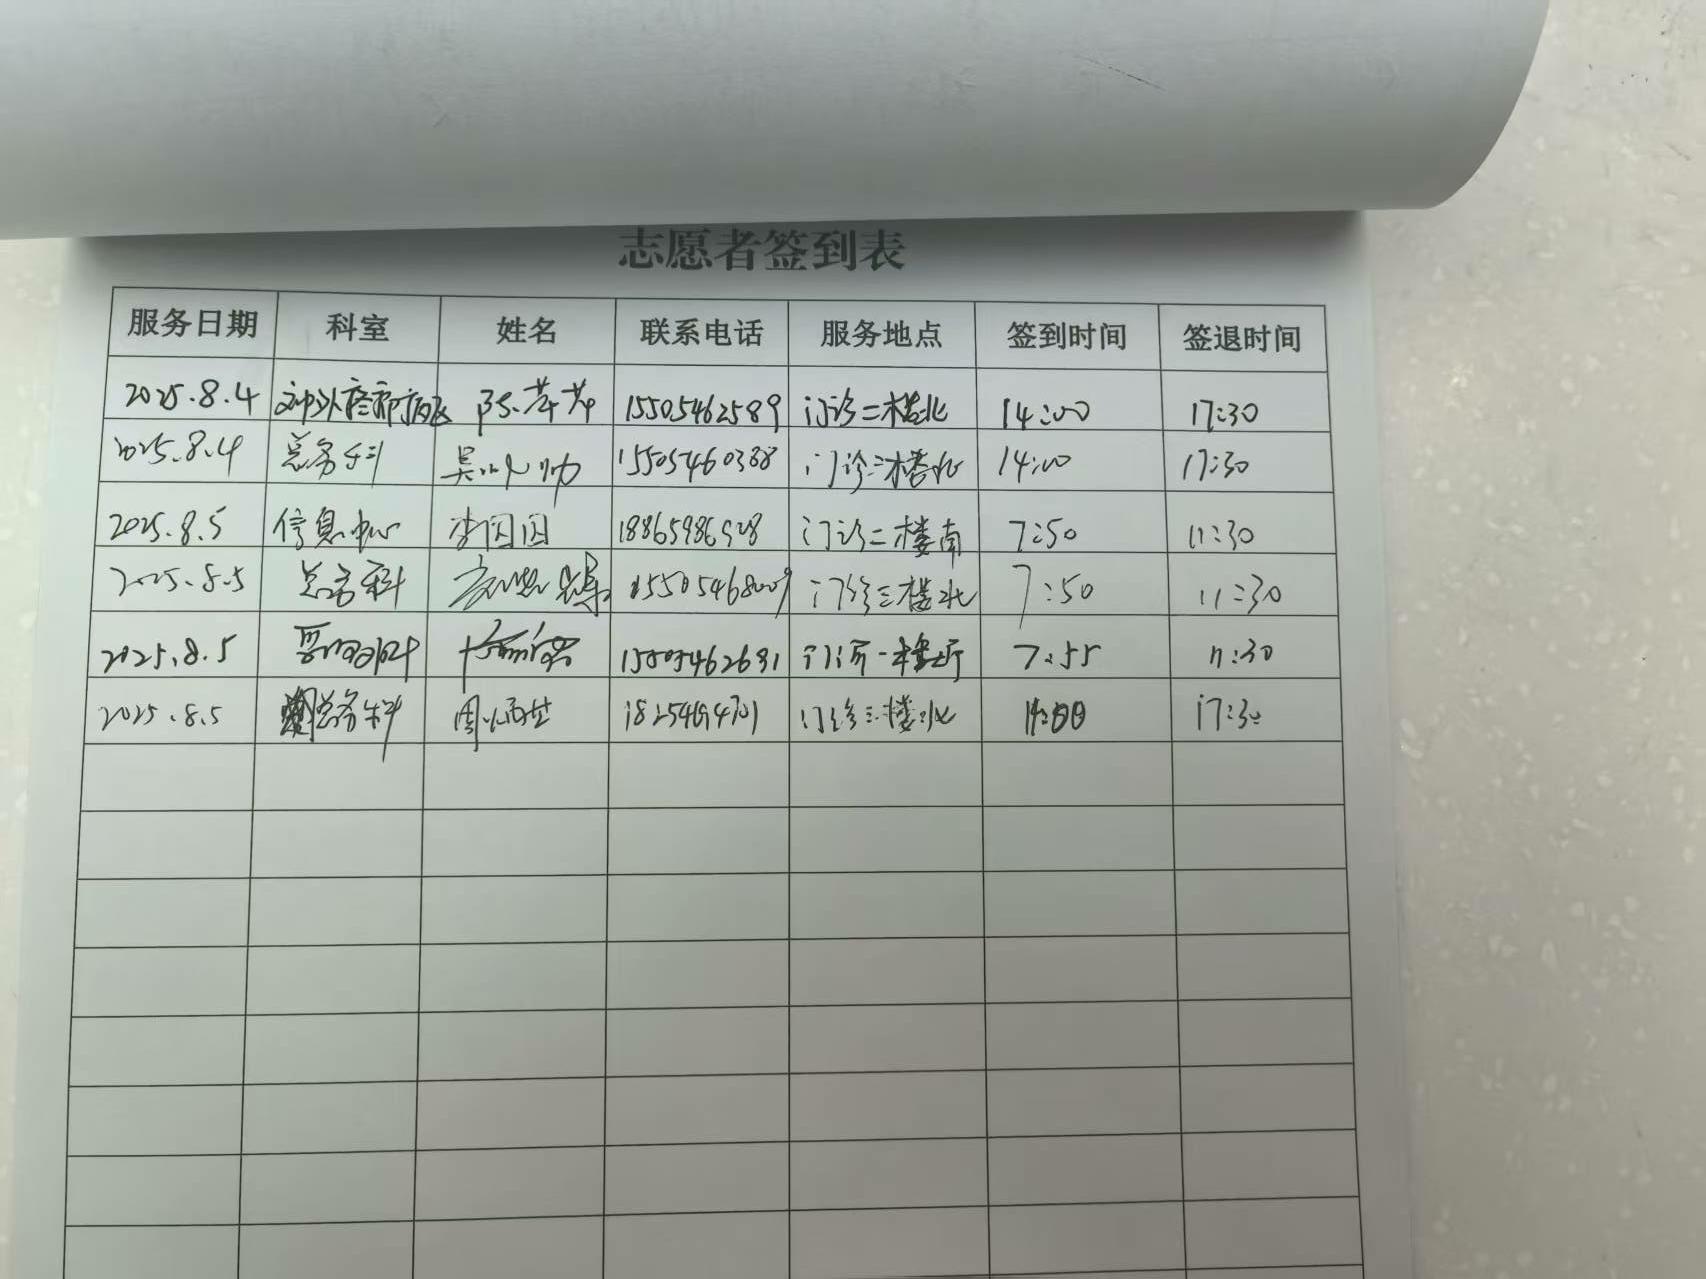 志愿者签到表
服务日期 科室 姓名 联系电话 服务地点 签到时间 签退时间
2025.8.4 陈芹芹 15505462589 门诊二楼北 14:00 17:30
2025.8.4 总务科 吴 15505460388 门诊三楼北 14:00 17:30
2025.8.5 信息中心 李囡囡 门诊二楼南 7:50 11:30
2025.8.5 总务科 门诊三楼北 7:50 11:30
2025.8.5 门诊一楼 7:55 11:30
2025.8.5 总务科 周 门诊三楼北 17:30